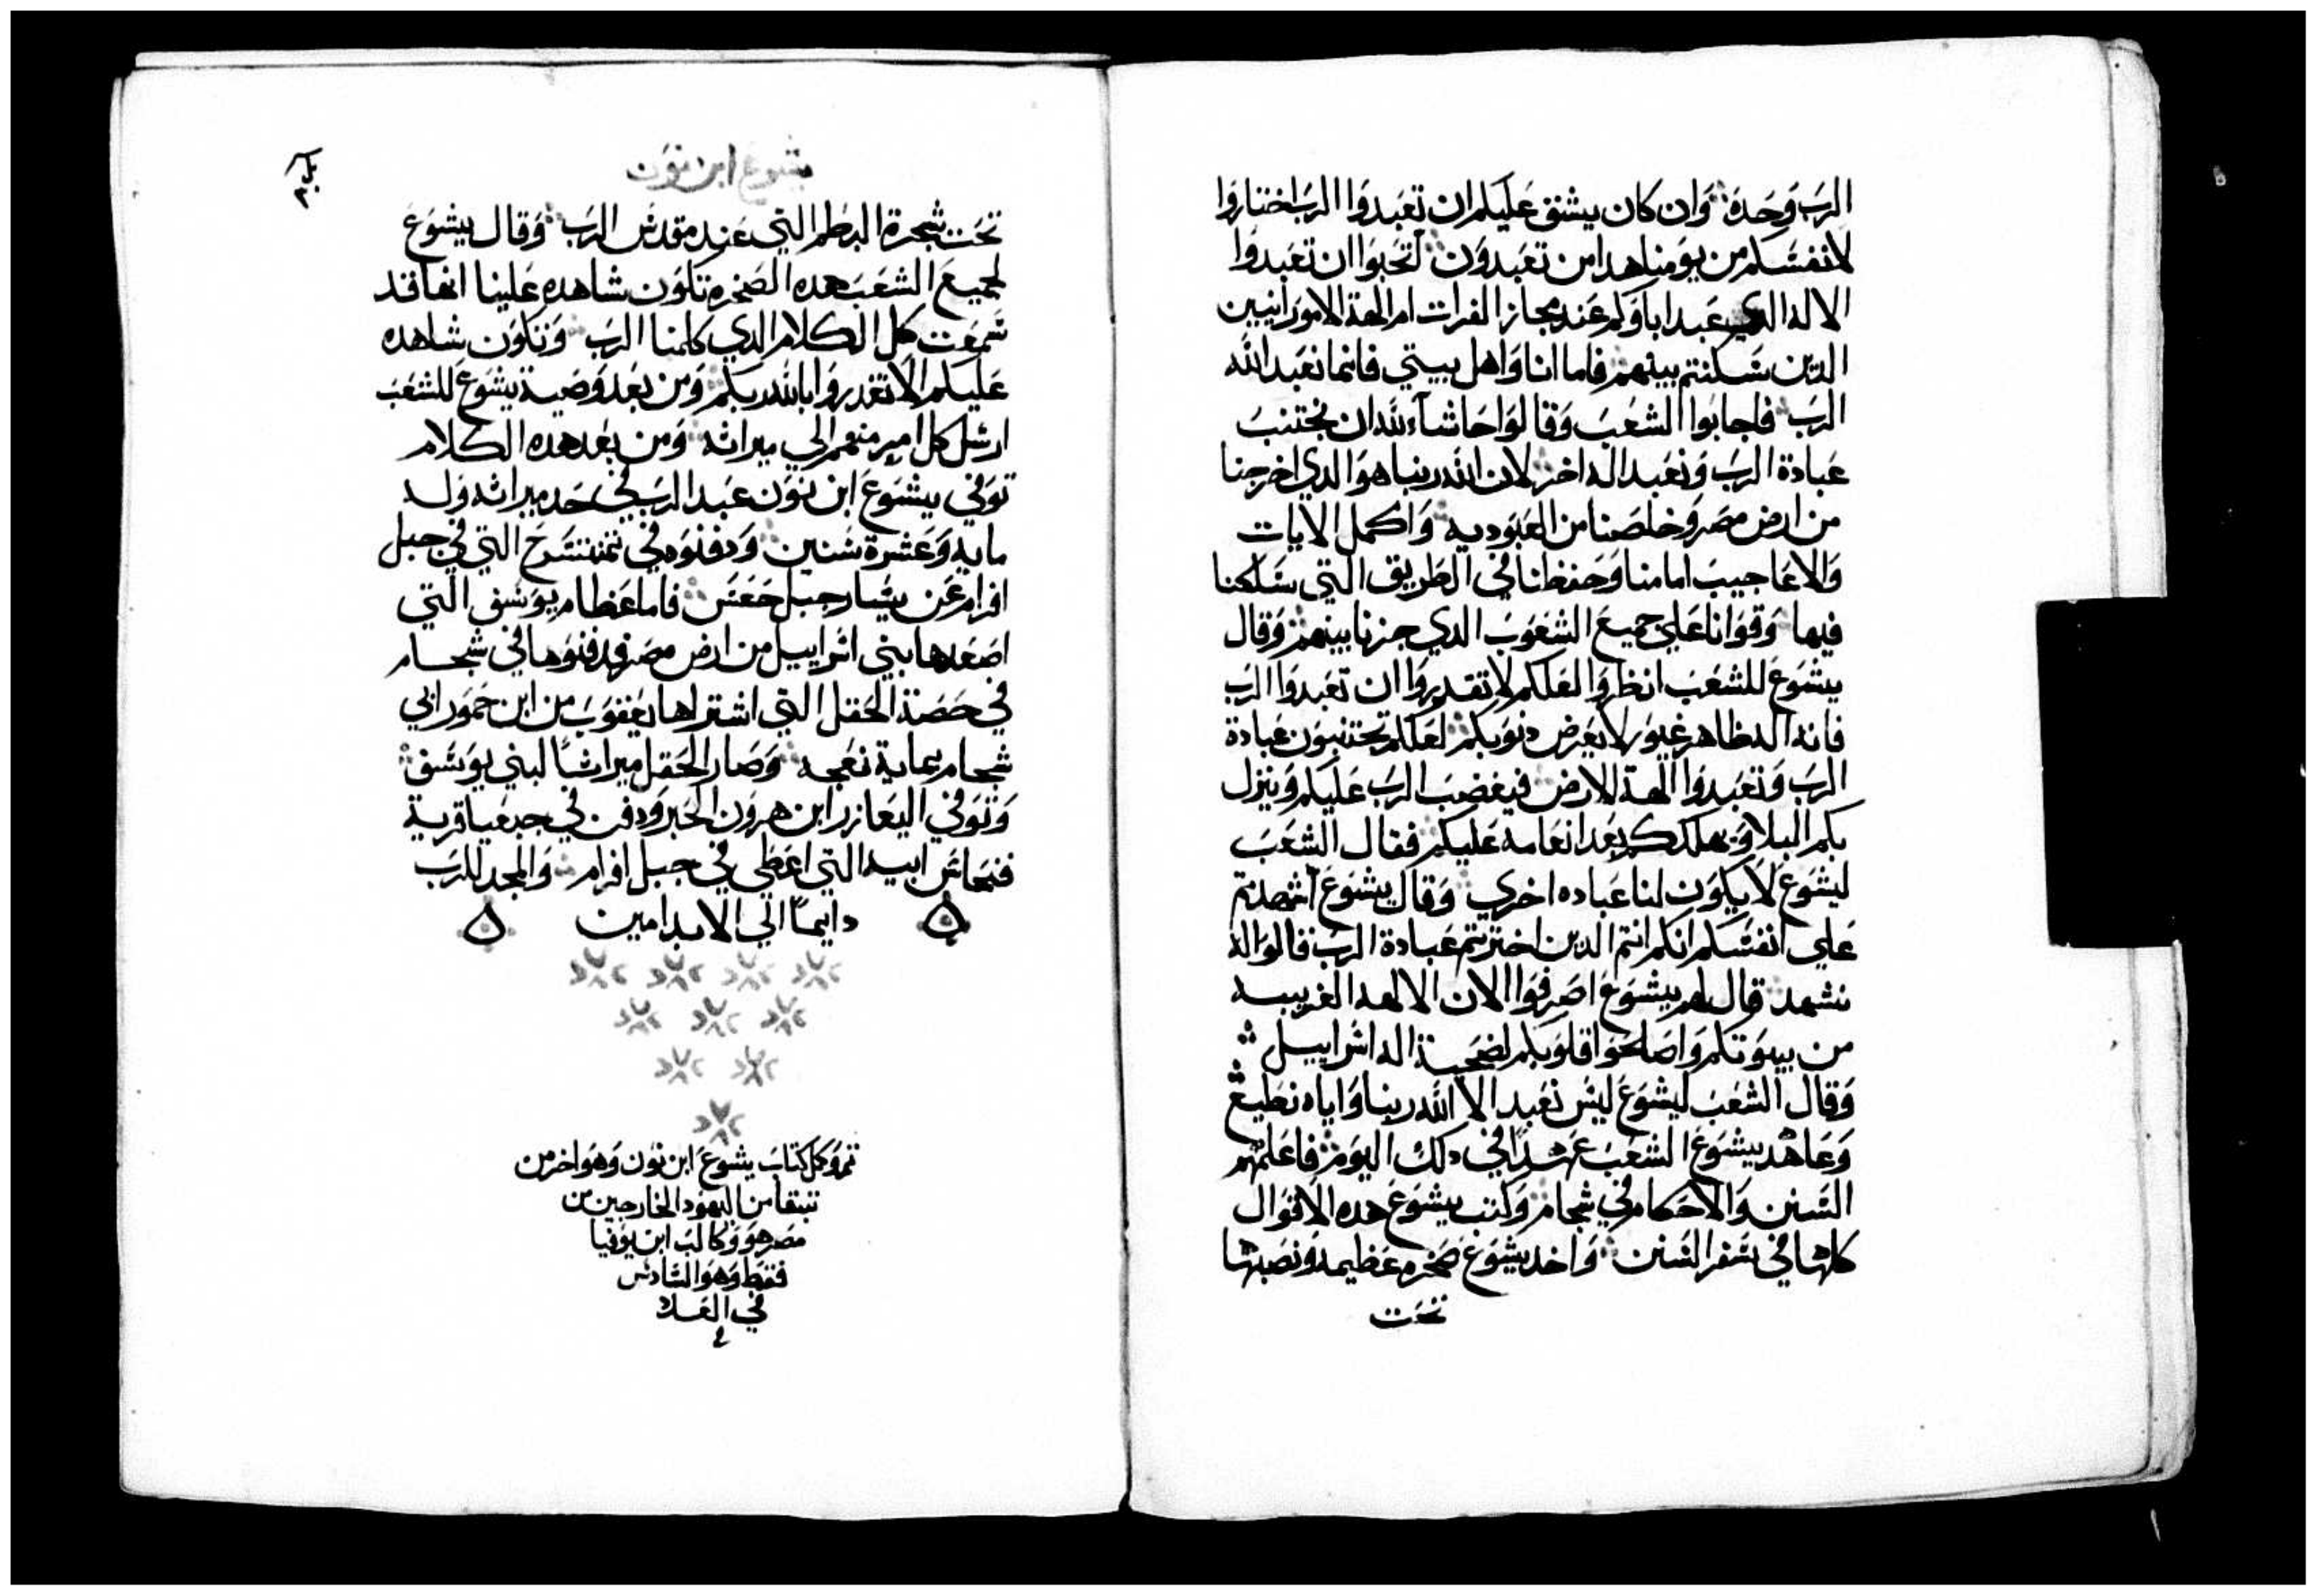 الرب وحده وان كان يشق عليكم ان تعبدوا الرب اختاروا
لانفسكم من يومنا هدا من تعبدون اتحبوا ان تعبدوا
الاله الدي عبد اباوكم عند مجاز الفرات ام الهة الامورانيين
الدين سكنتم بينهم فاما انا واهل بيتي فانما نعبد الله
الرب فاجابوا الشعب وقالوا حاشا لله ان نجتنب
عبادة الرب ونعبد اله اخر لان الله ربنا هو الدي اخرجنا
من ارض مصر وخلصنا من العبوديه واكمل الايات
والاعاجيب امامنا وحفظنا في الطريق التي سلكنا
فيها وقوانا علي جميع الشعوب الدي جزنا بينهم وقال
يشوع للشعب انظروا لعلكم لا تقدروا ان تعبدوا الرب
فانه اله ظاهر غيور لا يغرض دنوبكم لعلكم تجتنبون عبادة
الرب وتعبدوا الهة الارض فيغضب الرب عليكم وينزل
بكم البلا ويهلككم بعد انعامه عليكم فقال الشعب
ليشوع لا يكون لنا عباده اخري وقال يشوع اشهدتم
علي انفسكم انكم انتم الدين اخترتم عبادة الرب قالوا له
نشهد قال لهم يشوع اصرفوا الان الالهه الغريبه
من بيوتكم واصلحوا قلوبكم لضحية اله اسراييل
وقال الشعب ليشوع ليس نعبد الا الله ربنا واياه نطيع
وعاهد يشوع الشعب عهدا في دلك اليوم فاعلمهم
السنن والاحكام في شجام وكتب يشوع هده الاقوال
كلها في سفر السنن واخد يشوع صخره عظيمه ونصبها
تحت
يشوع ابن نون
تحت شجرة البطم التي عند مقدس الرب وقال يشوع
لجميع الشعب هده الصخره تكون شاهده علينا انها قد
سمعت كل الكلام الدي كلمنا الرب وتكون شاهده
عليكم الا تغدروا بالله ربكم ومن بعد وصية يشوع للشعب
ارسل كل امير منهم الي ميراثه ومن بعد هده الكلام
توفي يشوع ابن نون عبد الرب في حد ميراثه وله
مايه وعشرة سنين ودفنوه في تمنتسرح التي في جبل
افرام عن يسار جبل جعس فاما عظام يوسف التي
اصعدها بني اسراييل من ارض مصر فدفنوها في شجام
في حصة الحقل التي اشتراها يعقوب من ابن حمور ابي
شجام بماية نعجه وصار الحقل ميراثا لبني يوسف
وتوفي اليعازر ابن هرون الحبر ودفن في جبعيا قرية
فنحاس ابيه التي اعطي في جبل افرام والمجد للرب
دايما الي الابد امين
تم وكمل كتاب يشوع ابن نون وهو اخر من
تبقا من اليهود الخارجين من
مصر هو وكالب ابن يوفيا
فقط وهو السادس
في العدد